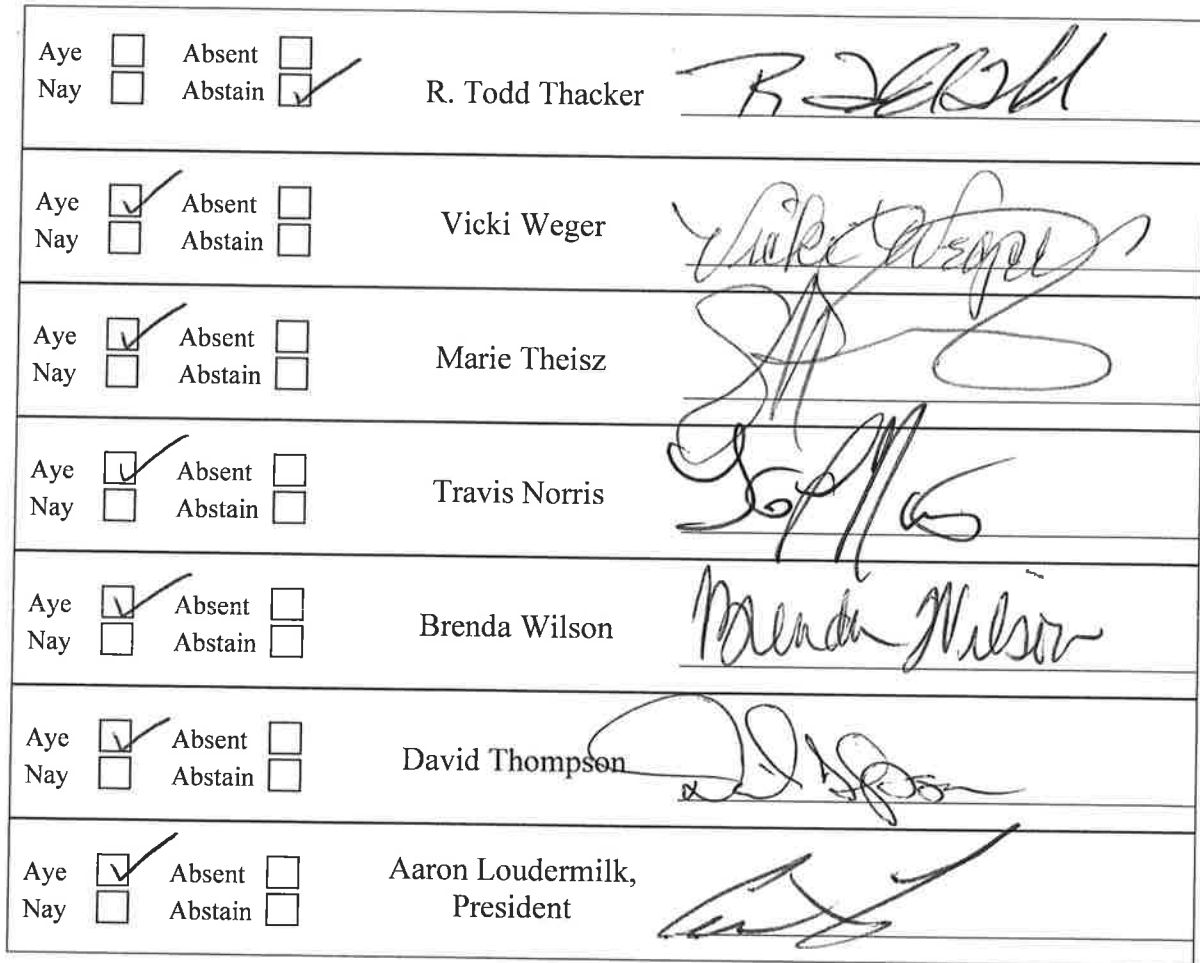 Aye ☐ Absent ☐
Nay ☐ Abstain ☑ R. Todd Thacker
Aye ☑ Absent ☐
Nay ☐ Abstain ☐ Vicki Weger Vicki Weger
Aye ☑ Absent ☐
Nay ☐ Abstain ☐ Marie Theisz
Aye ☑ Absent ☐
Nay ☐ Abstain ☐ Travis Norris
Aye ☑ Absent ☐
Nay ☐ Abstain ☐ Brenda Wilson Brenda Wilson
Aye ☑ Absent ☐
Nay ☐ Abstain ☐ David Thompson
Aye ☑ Absent ☐ Aaron Loudermilk,
Nay ☐ Abstain ☐ President